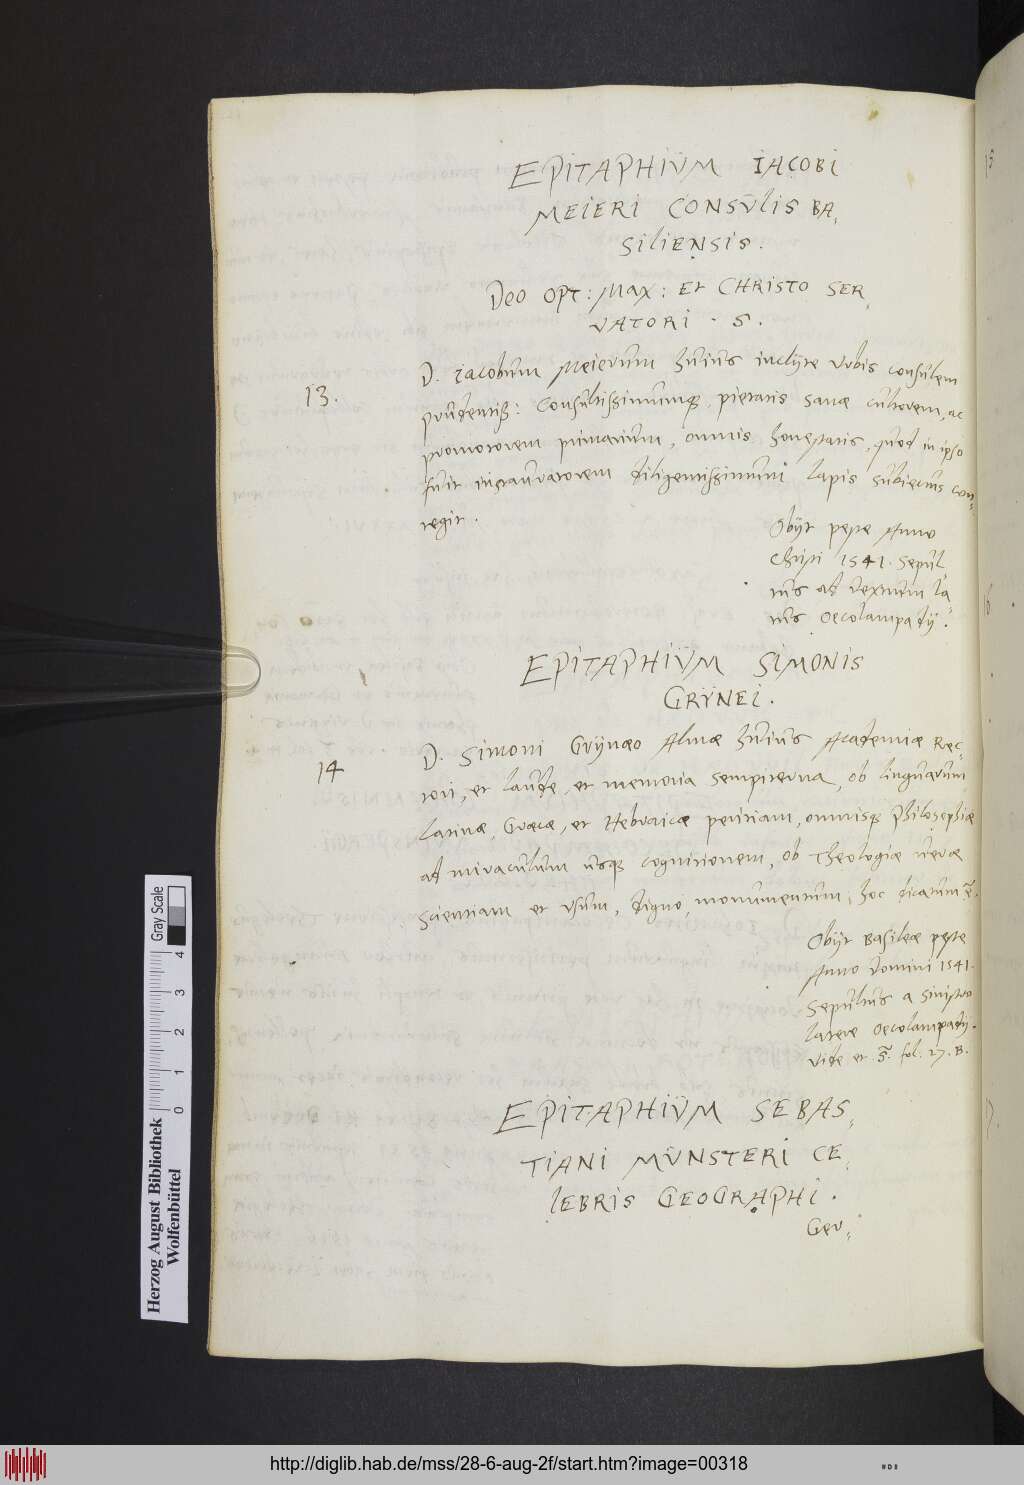 EPITAPHIŬM IACOBI
MEIERI CONSŬLIS BA,
SILIENSIS.
Deo Opt: Max: Et CHRISTO SER,
VATORI. S.
13.
D. Iacobum Meierum huius inclÿte vrbis consulem
prudentiß: Consultissimumq, pietatis sanæ cultorem, ac
promotorem primarium, omnis honestatis, quod in ipso
fuit instauratorem diligentissimum lapis subiectus con,
tegit.
Obÿt peste Anno
Christi 1541. Sepul,
tus ad dextrum la,
tus Oecolampadÿ.
EPITAPHIŬM SIMONIS
GRŸNEI.
14
D. Simoni Grÿnæo Almæ huius Academiæ Rec,
tori, et laude, et memoria sempiterna, ob linguarum
Latinæ, Græcæ, et Hebraicæ peritiam, omnisq Philosophiæ
ad miraculum usq cognitionem, ob Theologiæ veræ
scientiam et usum, digno, monumentum, hoc dicatum ē.
Obÿt Basileæ peste
Anno Domini 1541.
Sepultus a sinistro
latere Oecolampadÿ.
Vide et S. fol. 27. B.
EPITAPHIŬM SEBAS,
TIANI MŬNSTERI CE,
LEBRIS GEOGRAPHI.
Ger,
15
16
17.
Herzog August Bibliothek
Wolfenbüttel
0 1 2 3 4
Gray Scale
http://diglib.hab.de/mss/28-6-aug-2f/start.htm?image=00318